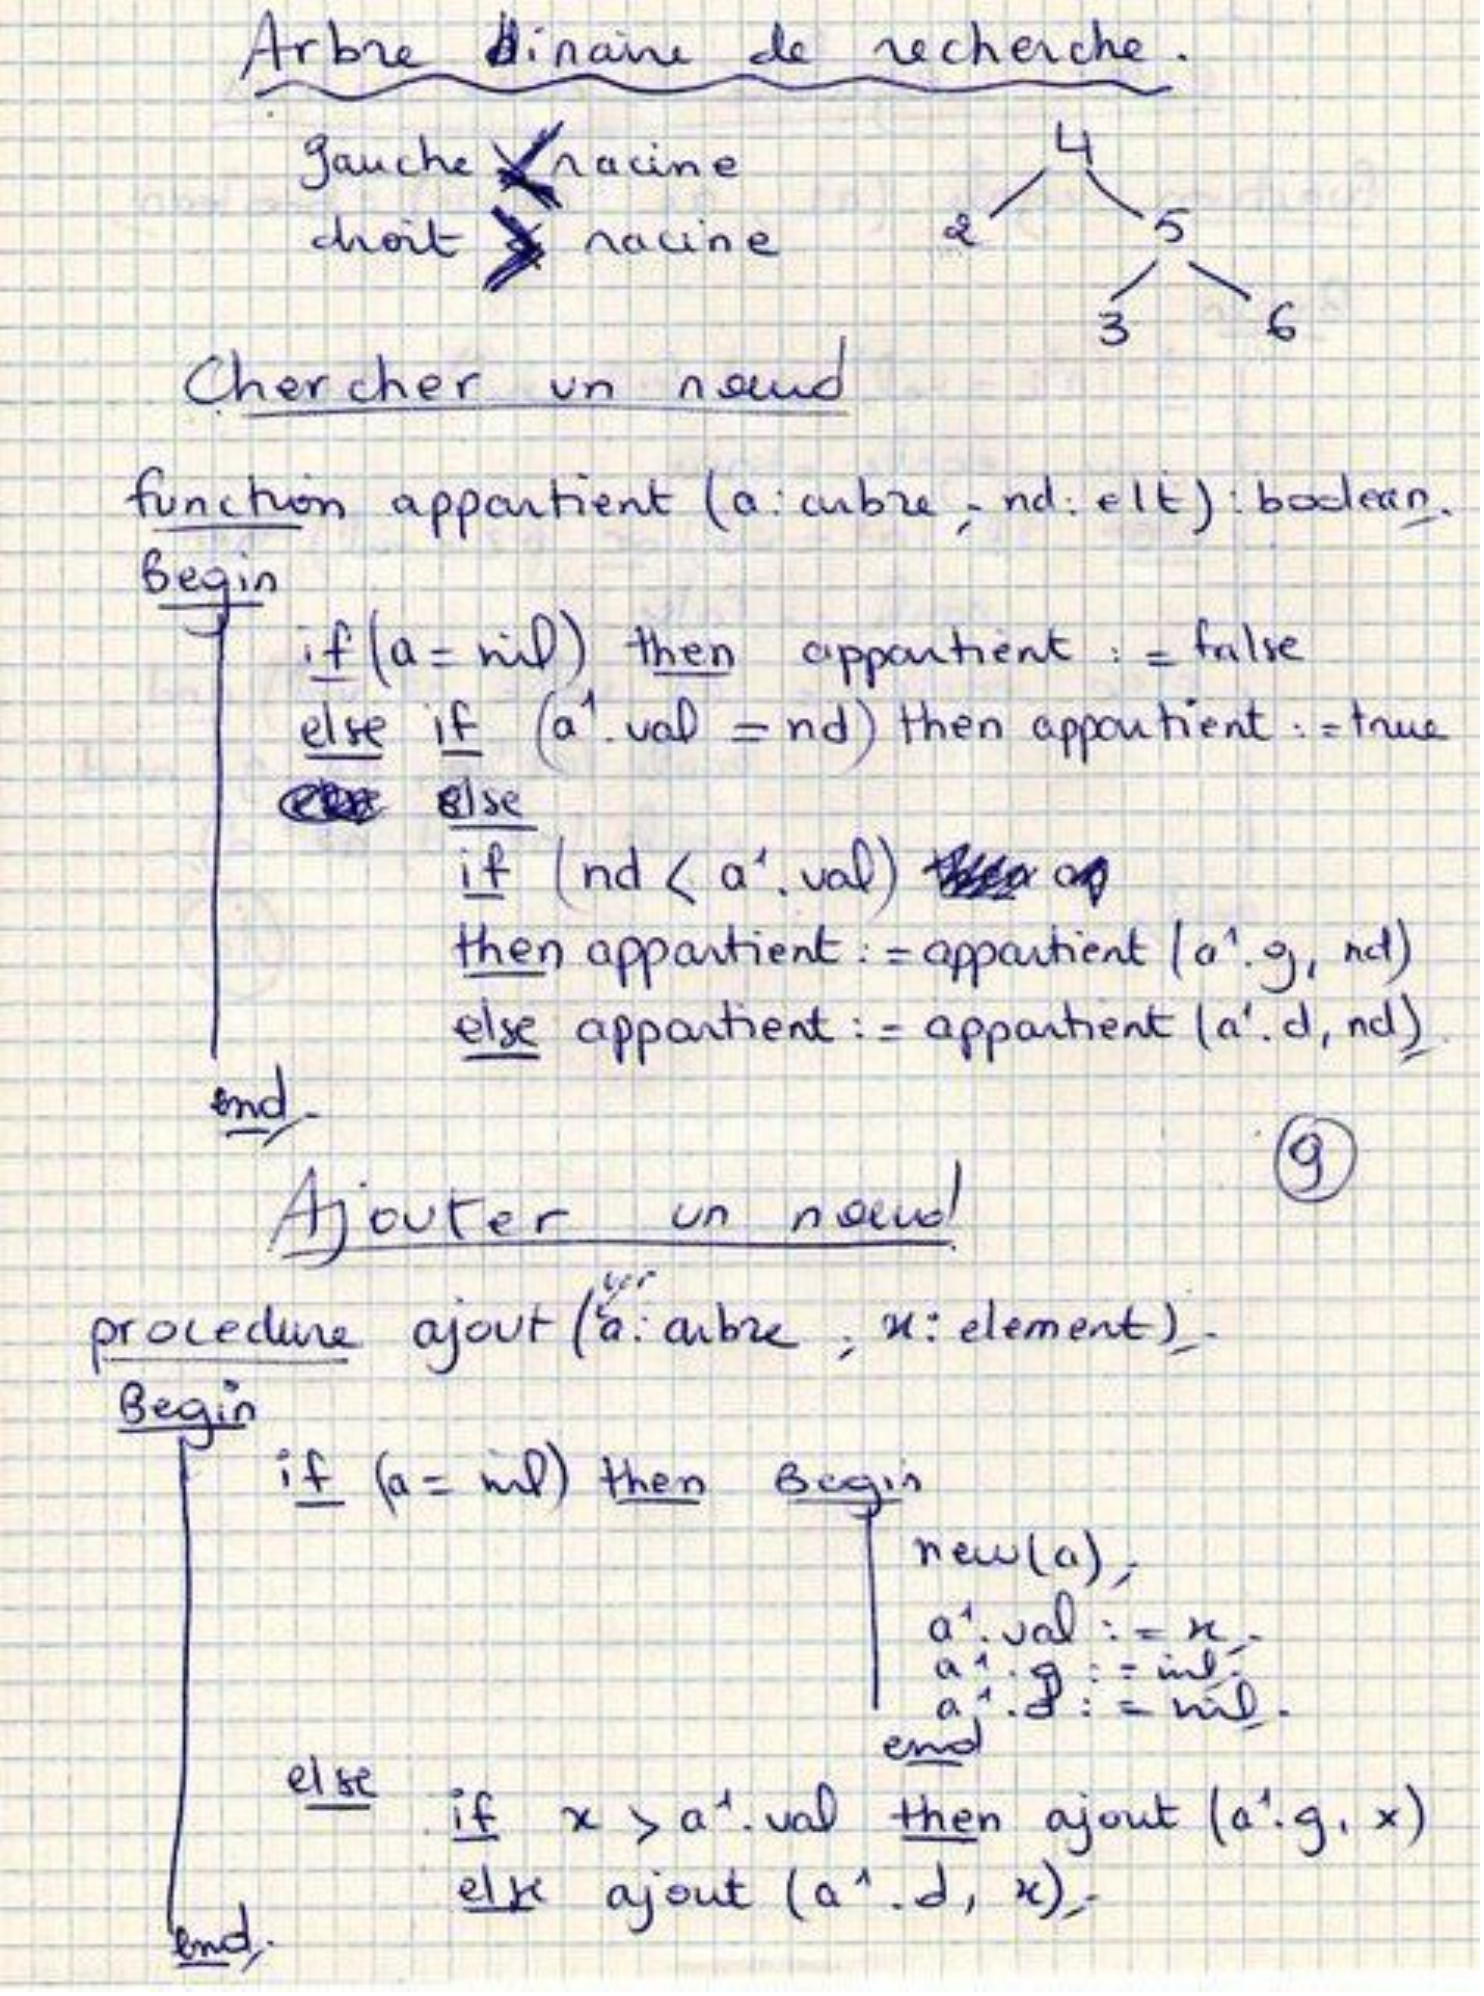 Arbre binaire de recherche.
gauche < racine
droit > racine
4
2 5
3 6
Chercher un nœud
function appartient (a: arbre ; nd: elt) : boolean;
Begin
if (a = nil) then appartient := false
else if (a^.val = nd) then appartient := true
else
if (nd < a^.val)
then appartient := appartient (a^.g, nd)
else appartient := appartient (a^.d, nd);
end;
9
Ajouter un nœud
procedure ajout (var a: arbre ; x: element);
Begin
if (a = nil) then Begin
new(a);
a^.val := x;
a^.g := nil;
a^.d := nil;
end
else
if x > a^.val then ajout (a^.g, x)
else ajout (a^.d, x);
end;